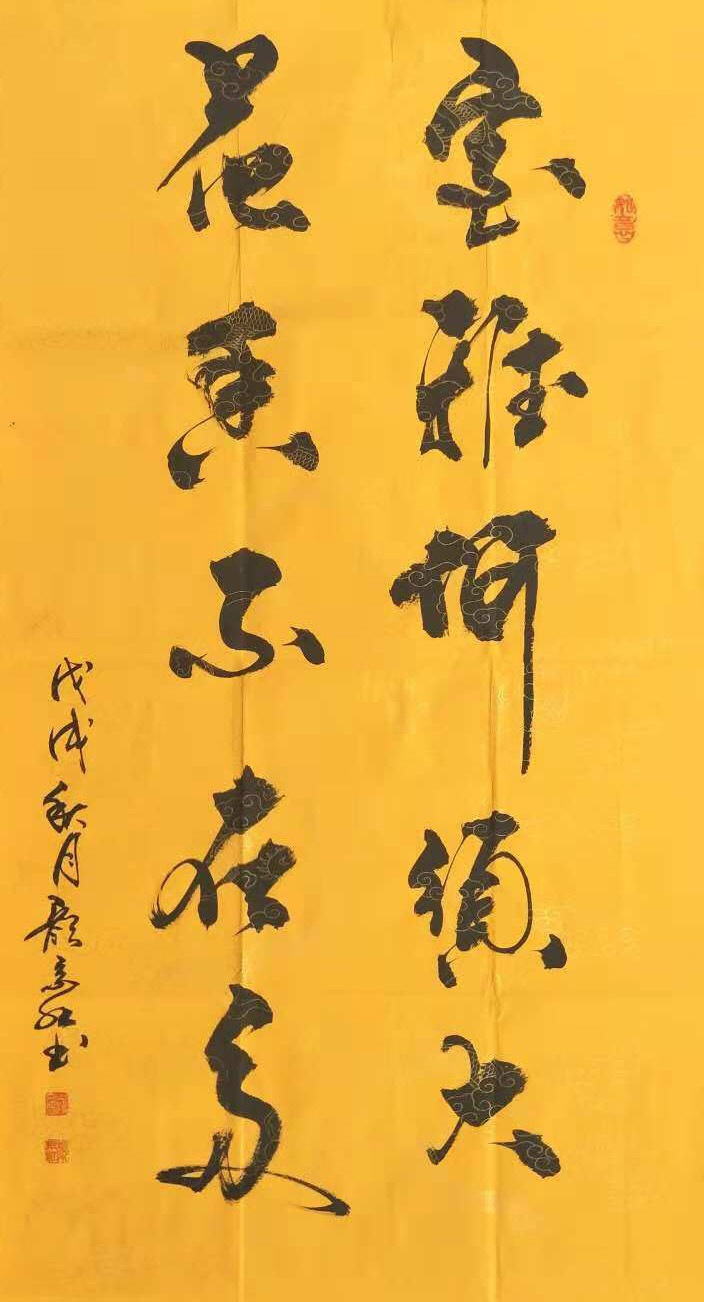 室雅何须大
花香不在多
戊戌秋月 书